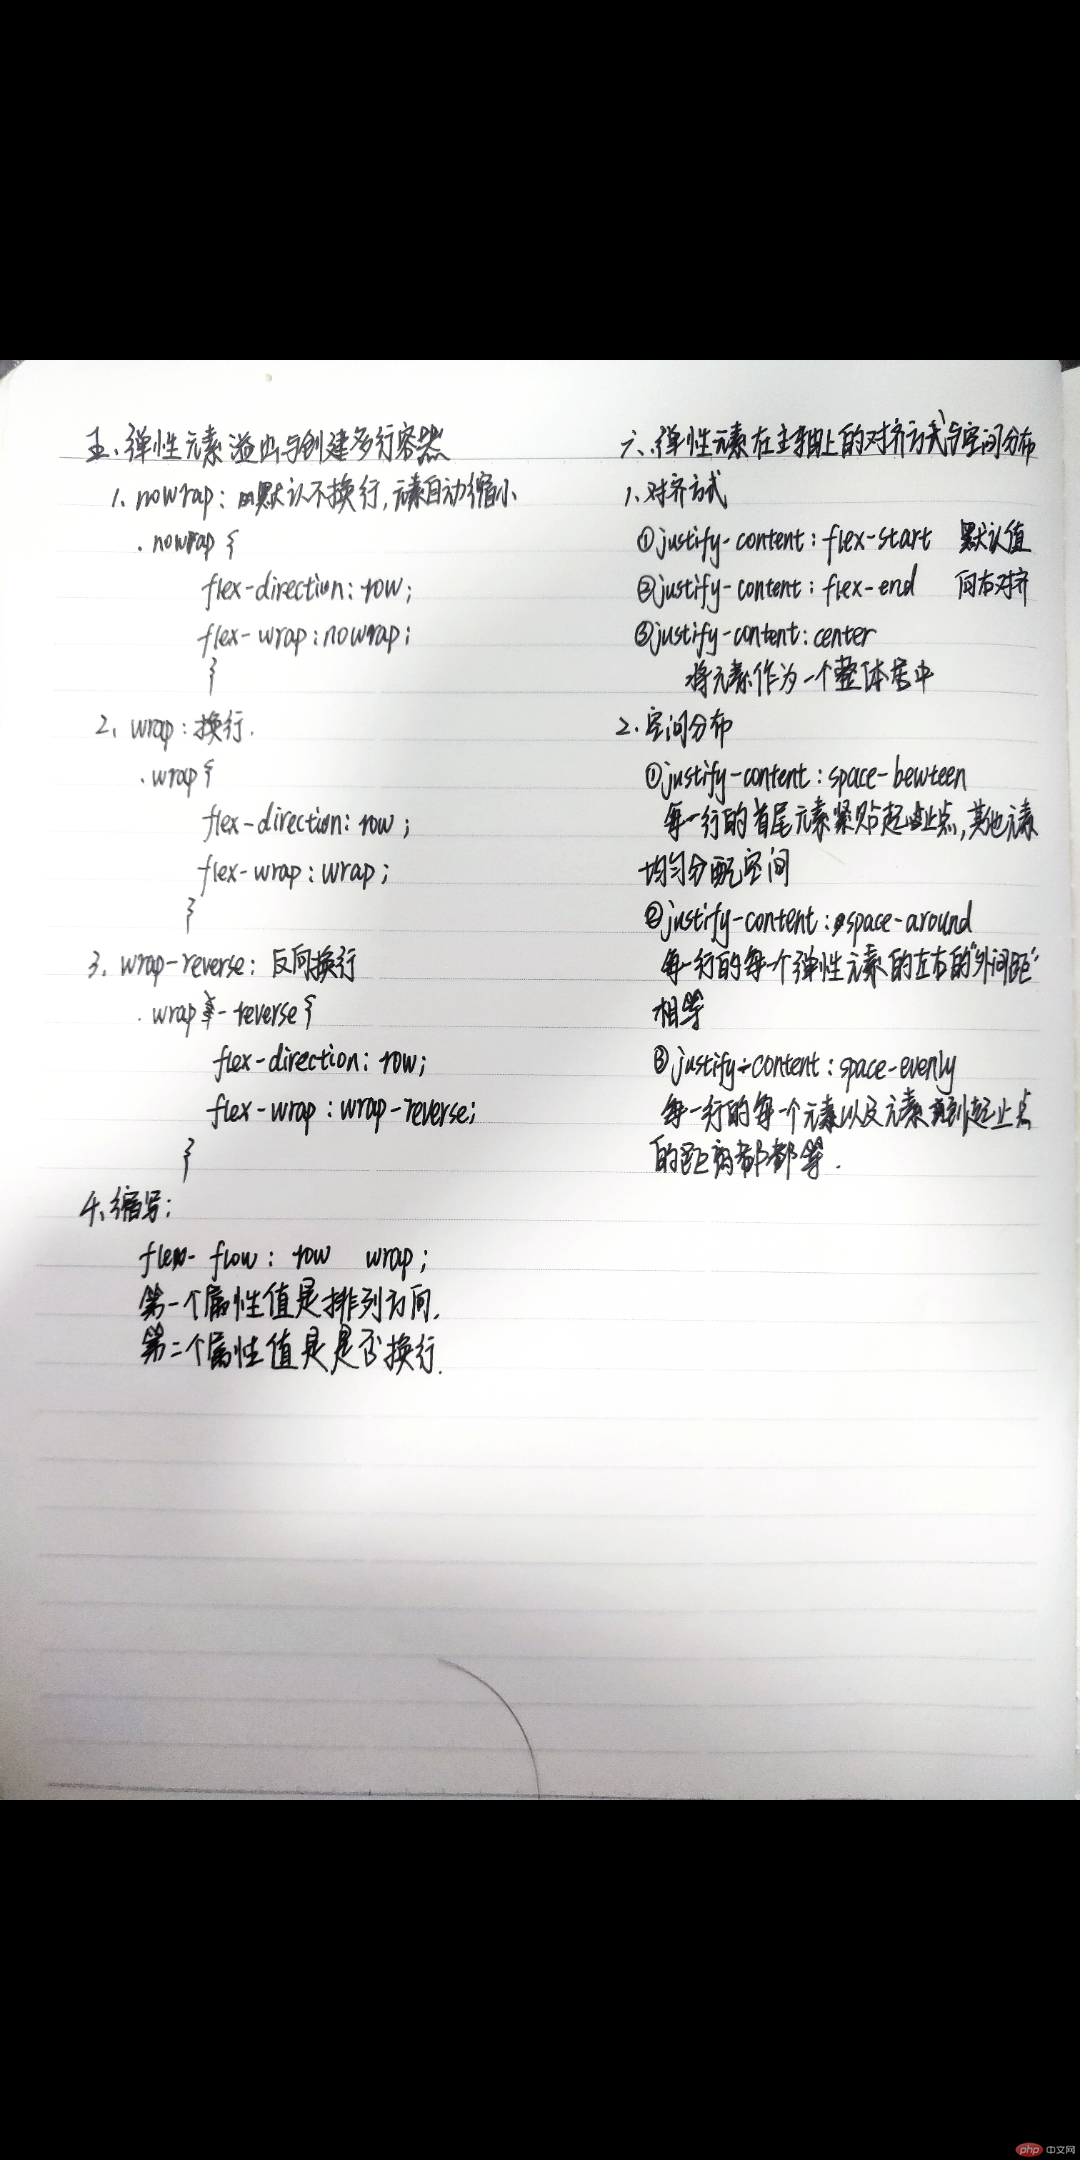 五、弹性元素溢出与创建多行容器
1、nowrap：默认不换行,元素自动缩小
.nowrap {
flex-direction: row;
flex-wrap: nowrap;
}
2、wrap：换行.
.wrap {
flex-direction: row;
flex-wrap: wrap;
}
3、wrap-reverse：反向换行
.wrap-reverse {
flex-direction: row;
flex-wrap: wrap-reverse;
}
4、缩写：
flex-flow: row wrap;
第一个属性值是排列方向.
第二个属性值是是否换行.
六、弹性元素在主轴上的对齐方式与空间分布
1、对齐方式
①justify-content: flex-start 默认值
②justify-content: flex-end 向右对齐
③justify-content: center
将元素作为一个整体居中
2.空间分布
①justify-content: space-bewteen
每一行的首尾元素紧贴起止点,其他元素
均匀分配空间
②justify-content: space-around
每一行的每一个弹性元素的左右的"外间距"
相等
③justify-content: space-evenly
每一行的每一个元素以及元素到起止点
的距离都等.
php 中文网